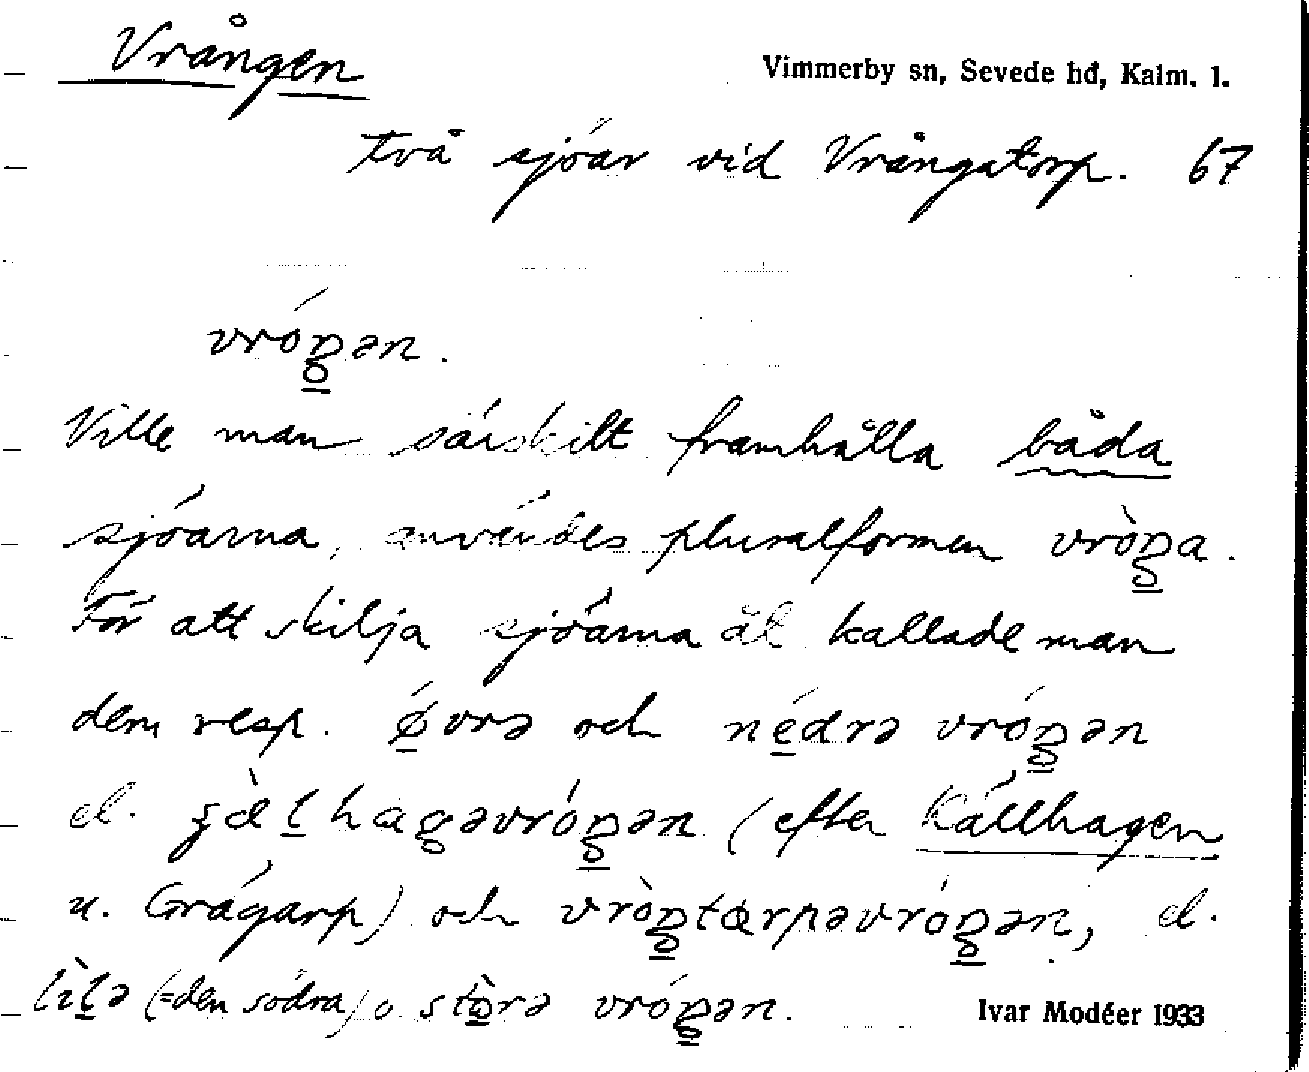 Vrången
Vimmerby sn, Sevede hd, Kalm. l.
två sjöar vid Vrångatorp. 67
vróŋən.
Ville man särskilt framhålla båda
sjöarna, användes pluralformen vròŋa.
För att skilja sjöarna åt kallade man
dem resp. ǿvrə och nédrə vróŋən
el. (efter Källhagen
u. Grågarp) och vròŋtorpəvróŋən, el.
lìlə (=den södra) o. stòrə vróŋən.
Ivar Modéer 1933